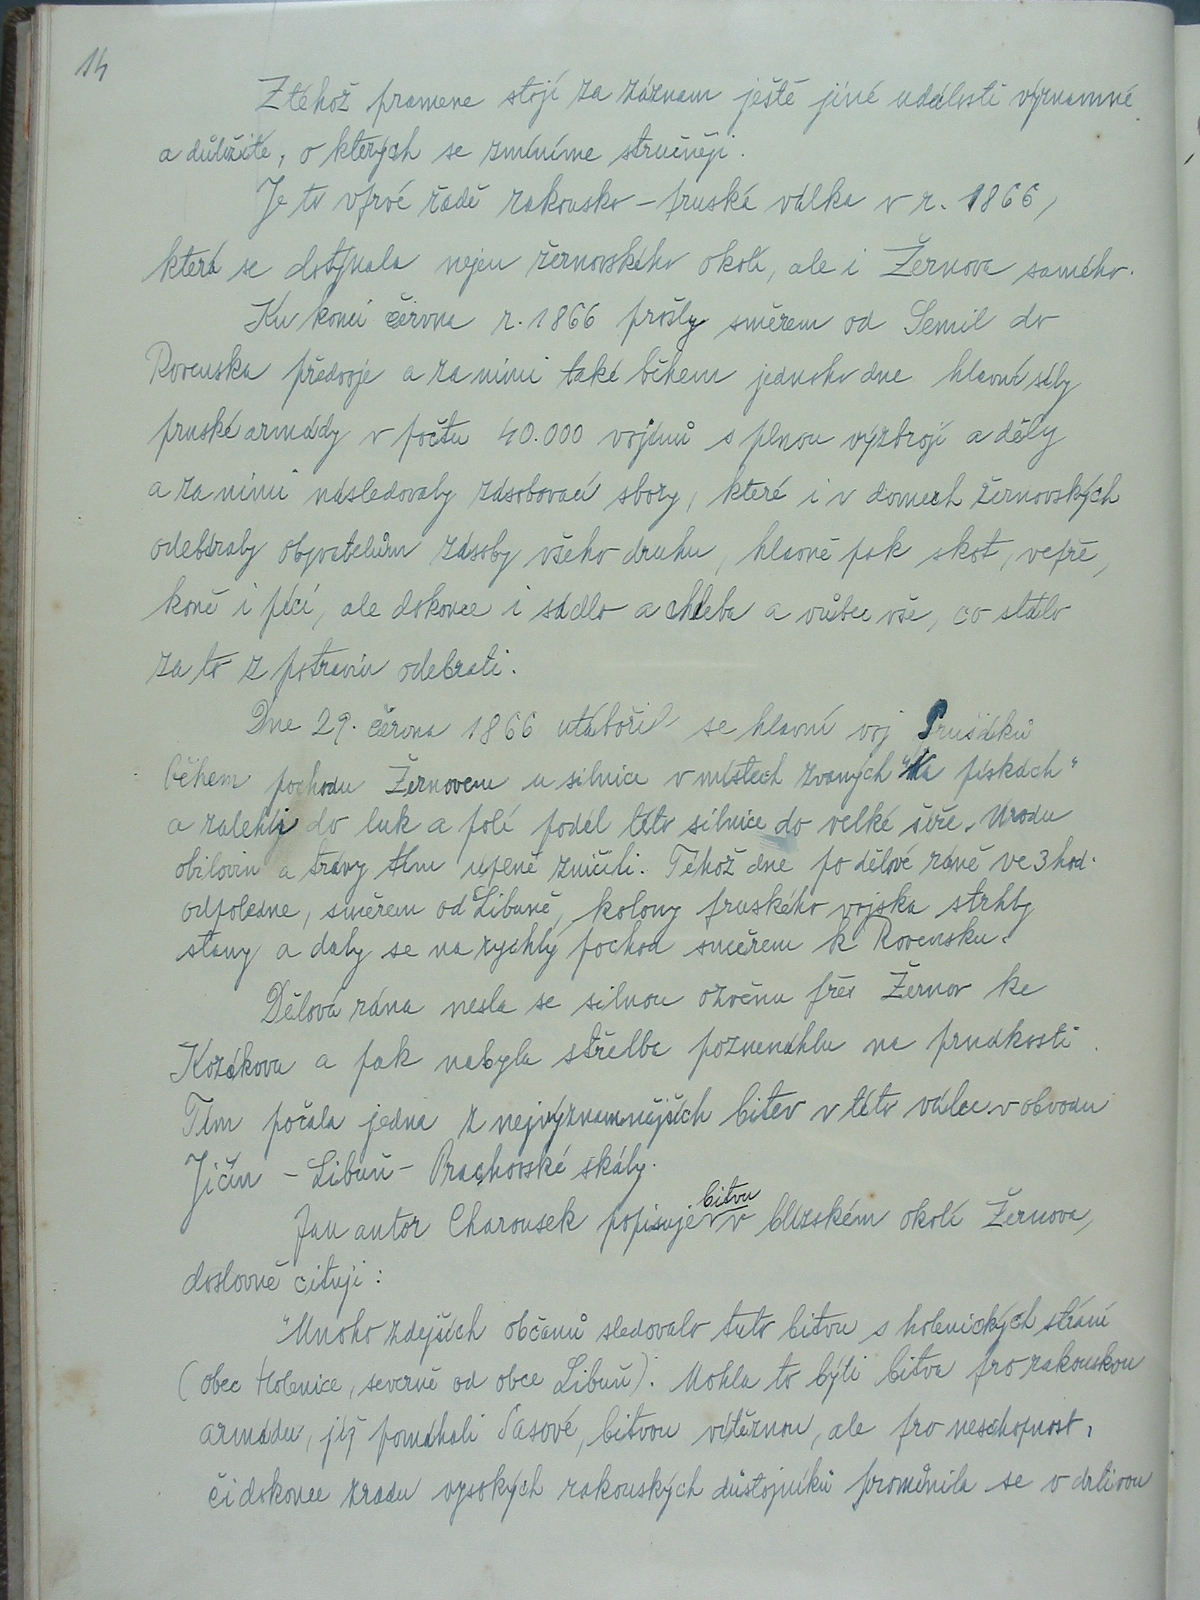 14
Z téhož pramene stojí za záznam ještě jiné události významné
a důležité, o kterých se zmíníme stručněji.
Je to v prvé řadě rakousko – pruská válka v r. 1866,
která se dotýkala nejen žernovského okolí, ale i Žernova samého.
Ku konci června r. 1866 prošly směrem od Semil do
Rovenska předvoje a za nimi také během jednoho dne hlavní síly
pruské armády v počtu 40.000 vojínů s plnou výzbrojí a děly
a za nimi následovaly zásobovací sbory, které i v domech žernovských
odebíraly obyvatelům zásoby všeho druhu, hlavně pak skot, vepře,
koně i píci, ale dokonce i sádlo a chleba a vůbec vše, co stálo
za to z potravin odebrati.
Dne 29. června 1866 utábořil se hlavní voj Prušáků
během pochodu Žernovem u silnice v místech zvaných "Na pískách"
a zalehli do luk a polí podél této silnice do velké šíře. Úrodu
obilovin a trávy tím úplně zničili. Téhož dne po dělové ráně ve 3 hod.
odpoledne, směrem od Libuně, kolony pruského vojska strhly
stany a daly se na rychlý pochod směrem k Rovensku.
Dělová rána nesla se silnou ozvěnu přes Žernov ke
Kozákovu a pak nabyla střelba poznenáhlu na prudkosti.
Tím počala jedna z nejvýznamnějších bitev v této válce v obvodu
Jičín – Libuň – Prachovské skály.
Jan autor Charousek popisuje bitvu v blízském okolí Žernova,
doslovně cituji:
"Mnoho zdejších občanů sledovalo tuto bitvu s holenických strání
(obec Holenice, severně od obce Libuň). Mohla to býti bitva pro rakouskou
armádu, jíž pomáhali Sasové, bitvou vítěznou, ale pro neschopnost,
či dokonce zradu vysokých rakouských důstojníků proměnila se v drtivou